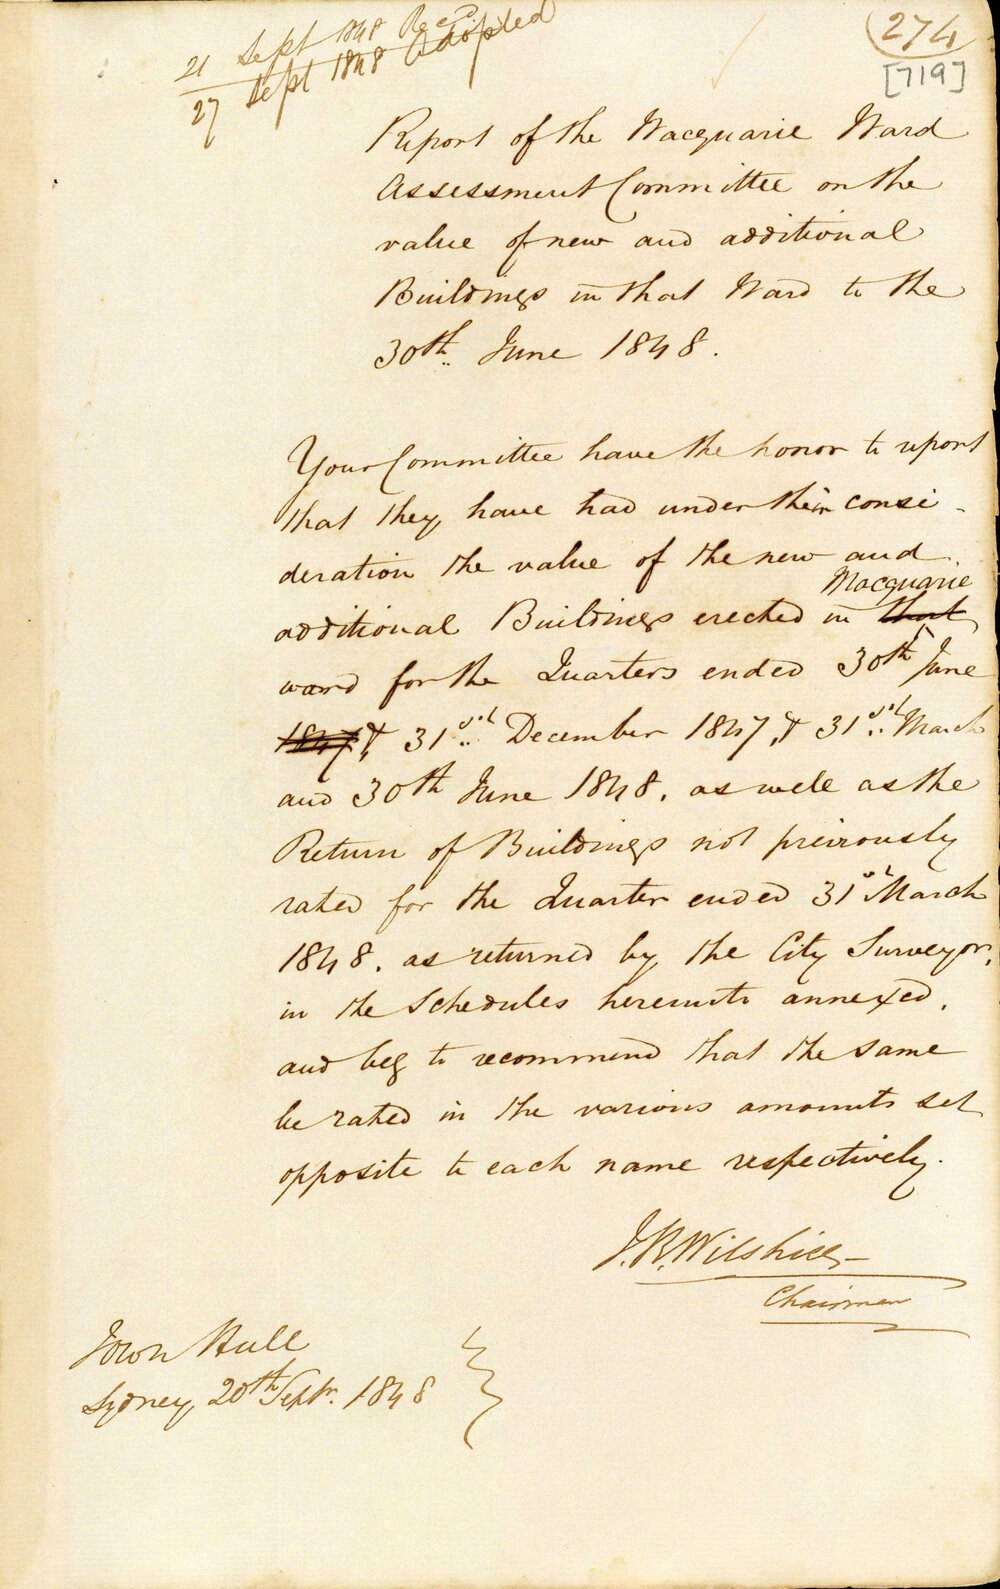 21 Sept 1848 Recd
27 Sept 1848 Adopted
274
[719]
Report of the Macquarie Ward
Assessment Committee on the
value of new and additional
Buildings in that Ward to the
30th June 1848.
Your Committee have the honor to report
that they have had under their consi-
deration the value of the new and
Macquarie
additional Buildings erected in that
ward for the Quarters ended 30th June
1847, & 31st December 1847, & 31st March
and 30th June 1848. as well as the
Return of Buildings not previously
rated for the Quarter ended 31st March
1848. as returned by the City Surveyor,
in the Schedules hereunto annexed,
and beg to recommend that the same
be rated in the various amounts set
opposite to each name respectively.
J. R. Wilshire
Chairman
Town Hall
Sydney, 20th Septr. 1848